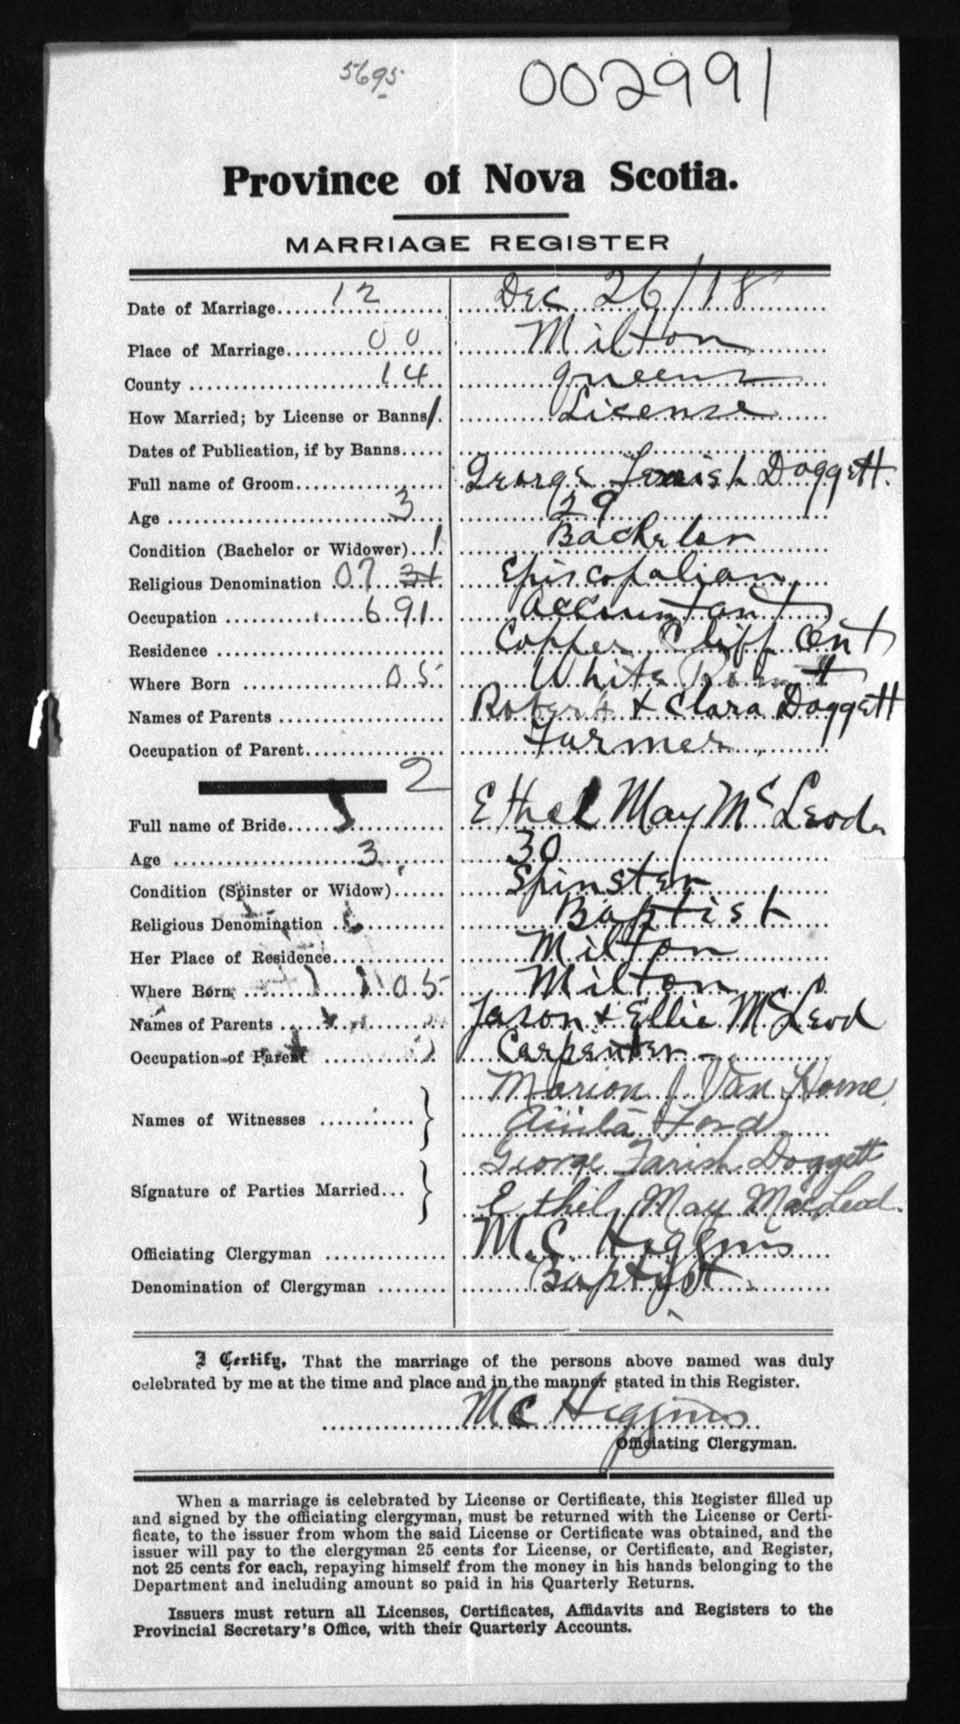 5695
002991
Province of Nova Scotia.
MARRIAGE REGISTER
Date of Marriage 12 Dec 26/18
Place of Marriage 00 Milton
County 14 Queens
How Married; by License or Banns 1 License
Dates of Publication, if by Banns
Full name of Groom George Doggett
Age 3 29
Condition (Bachelor or Widower) 1 Bachelor
Religious Denomination 07 31 Episcopalian
Occupation 691 Accountant
Residence Copper Cliff Ont
Where Born 05 White Point
Names of Parents Robert & Clara Doggett
Occupation of Parent Farmer
2
Full name of Bride Ethel May McLeod
Age 3 30
Condition (Spinster or Widow) Spinster
Religious Denomination Baptist
Her Place of Residence Milton
Where Born 05 Milton
Names of Parents Jason & Ellie McLeod
Occupation of Parent Carpenter
Marion J Van Horne
Names of Witnesses
Ford
George Farish Doggett
Signature of Parties Married
Ethel May MacLeod.
Officiating Clergyman M.C. Higgins
Denomination of Clergyman Baptist
I Certify, That the marriage of the persons above named was duly
celebrated by me at the time and place and in the manner stated in this Register.
MC Higgins
Officiating Clergyman.
When a marriage is celebrated by License or Certificate, this Register filled up
and signed by the officiating clergyman, must be returned with the License or Certi-
ficate, to the issuer from whom the said License or Certificate was obtained, and the
issuer will pay to the clergyman 25 cents for License, or Certificate, and Register,
not 25 cents for each, repaying himself from the money in his hands belonging to the
Department and including amount so paid in his Quarterly Returns.
Issuers must return all Licenses, Certificates, Affidavits and Registers to the
Provincial Secretary's Office, with their Quarterly Accounts.